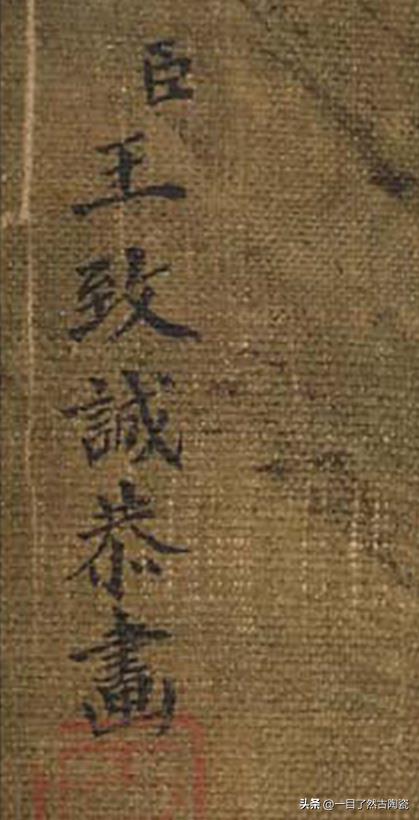 臣王致誠恭畫
头条 @一目了然古陶瓷